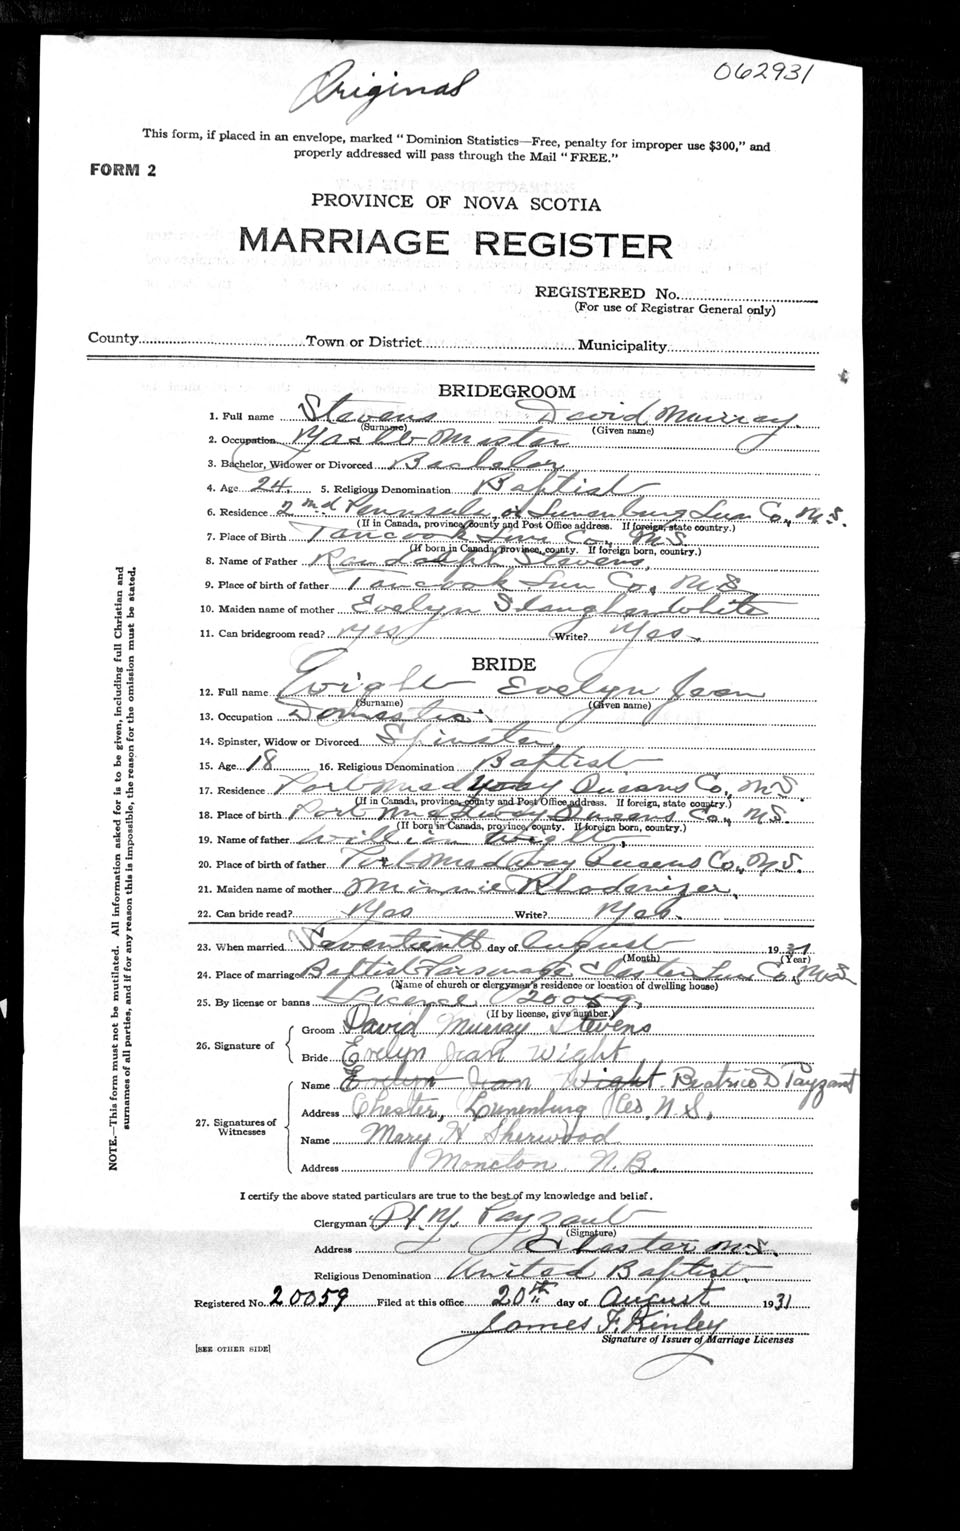 Original
062931
This form, if placed in an envelope, marked "Dominion Statistics—Free, penalty for improper use $300," and
properly addressed will pass through the Mail "FREE."
FORM 2
PROVINCE OF NOVA SCOTIA
MARRIAGE REGISTER
REGISTERED No.
(For use of Registrar General only)
County Town or District Municipality
BRIDEGROOM
1. Full name Stevens David Murray
(Surname) (Given name)
2. Occupation Master
3. Bachelor, Widower or Divorced Bachelor
4. Age 24 5. Religious Denomination Baptist
6. Residence 2nd Peninsula, Lunenburg Lun Co., N.S.
(If in Canada, province, county and Post Office address. If foreign, state country.)
7. Place of Birth Tancook Lun Co., N.S.
(If born in Canada, province, county. If foreign born, country.)
8. Name of Father Randolph Stevens,
9. Place of birth of father Tancook Lun Co., N.S.
10. Maiden name of mother Evelyn Slaughenwhite
11. Can bridegroom read? Yes Write? Yes.
BRIDE
12. Full name Wight Evelyn Jean
(Surname) (Given name)
13. Occupation Domestic.
14. Spinster, Widow or Divorced Spinster,
15. Age 18 16. Religious Denomination Baptist
17. Residence Port Medway Queens Co., N.S.
(If in Canada, province, county and Post Office address. If foreign, state country.)
18. Place of birth Port Medway Queens Co., N.S.
(If born in Canada, province, county. If foreign born, country.)
19. Name of father William Wight,
20. Place of birth of father Port Medway Queens Co., N.S.
21. Maiden name of mother Minnie Rhodenizer,
22. Can bride read? Yes Write? Yes.
23. When married Seventeenth day of August 1931
(Month) (Year)
24. Place of marriage Baptist Parsonage Chester Lun Co., N.S.
(Name of church or clergyman's residence or location of dwelling house)
25. By license or banns Licence 20059,
(If by license, give number.)
26. Signature of Groom David Murray Stevens
Bride Evelyn Jean Wight
27. Signatures of Witnesses Name Evelyn Jean Wight Beatrice D Payzant
Address Chester, Lunenburg Co, N.S.,
Name Mary H Sherwood
Address Moncton N.B.
I certify the above stated particulars are true to the best of my knowledge and belief.
Clergyman Payzant
(Signature)
Address Chester N.S.
Religious Denomination United Baptist.
Registered No. 20059 Filed at this office 20th day of August 1931
James F. Kinley
Signature of Issuer of Marriage Licenses
[SEE OTHER SIDE]
NOTE.—This form must not be mutilated. All information asked for is to be given, including full Christian and
surnames of all parties, and if for any reason this is impossible, the reason for the omission must be stated.